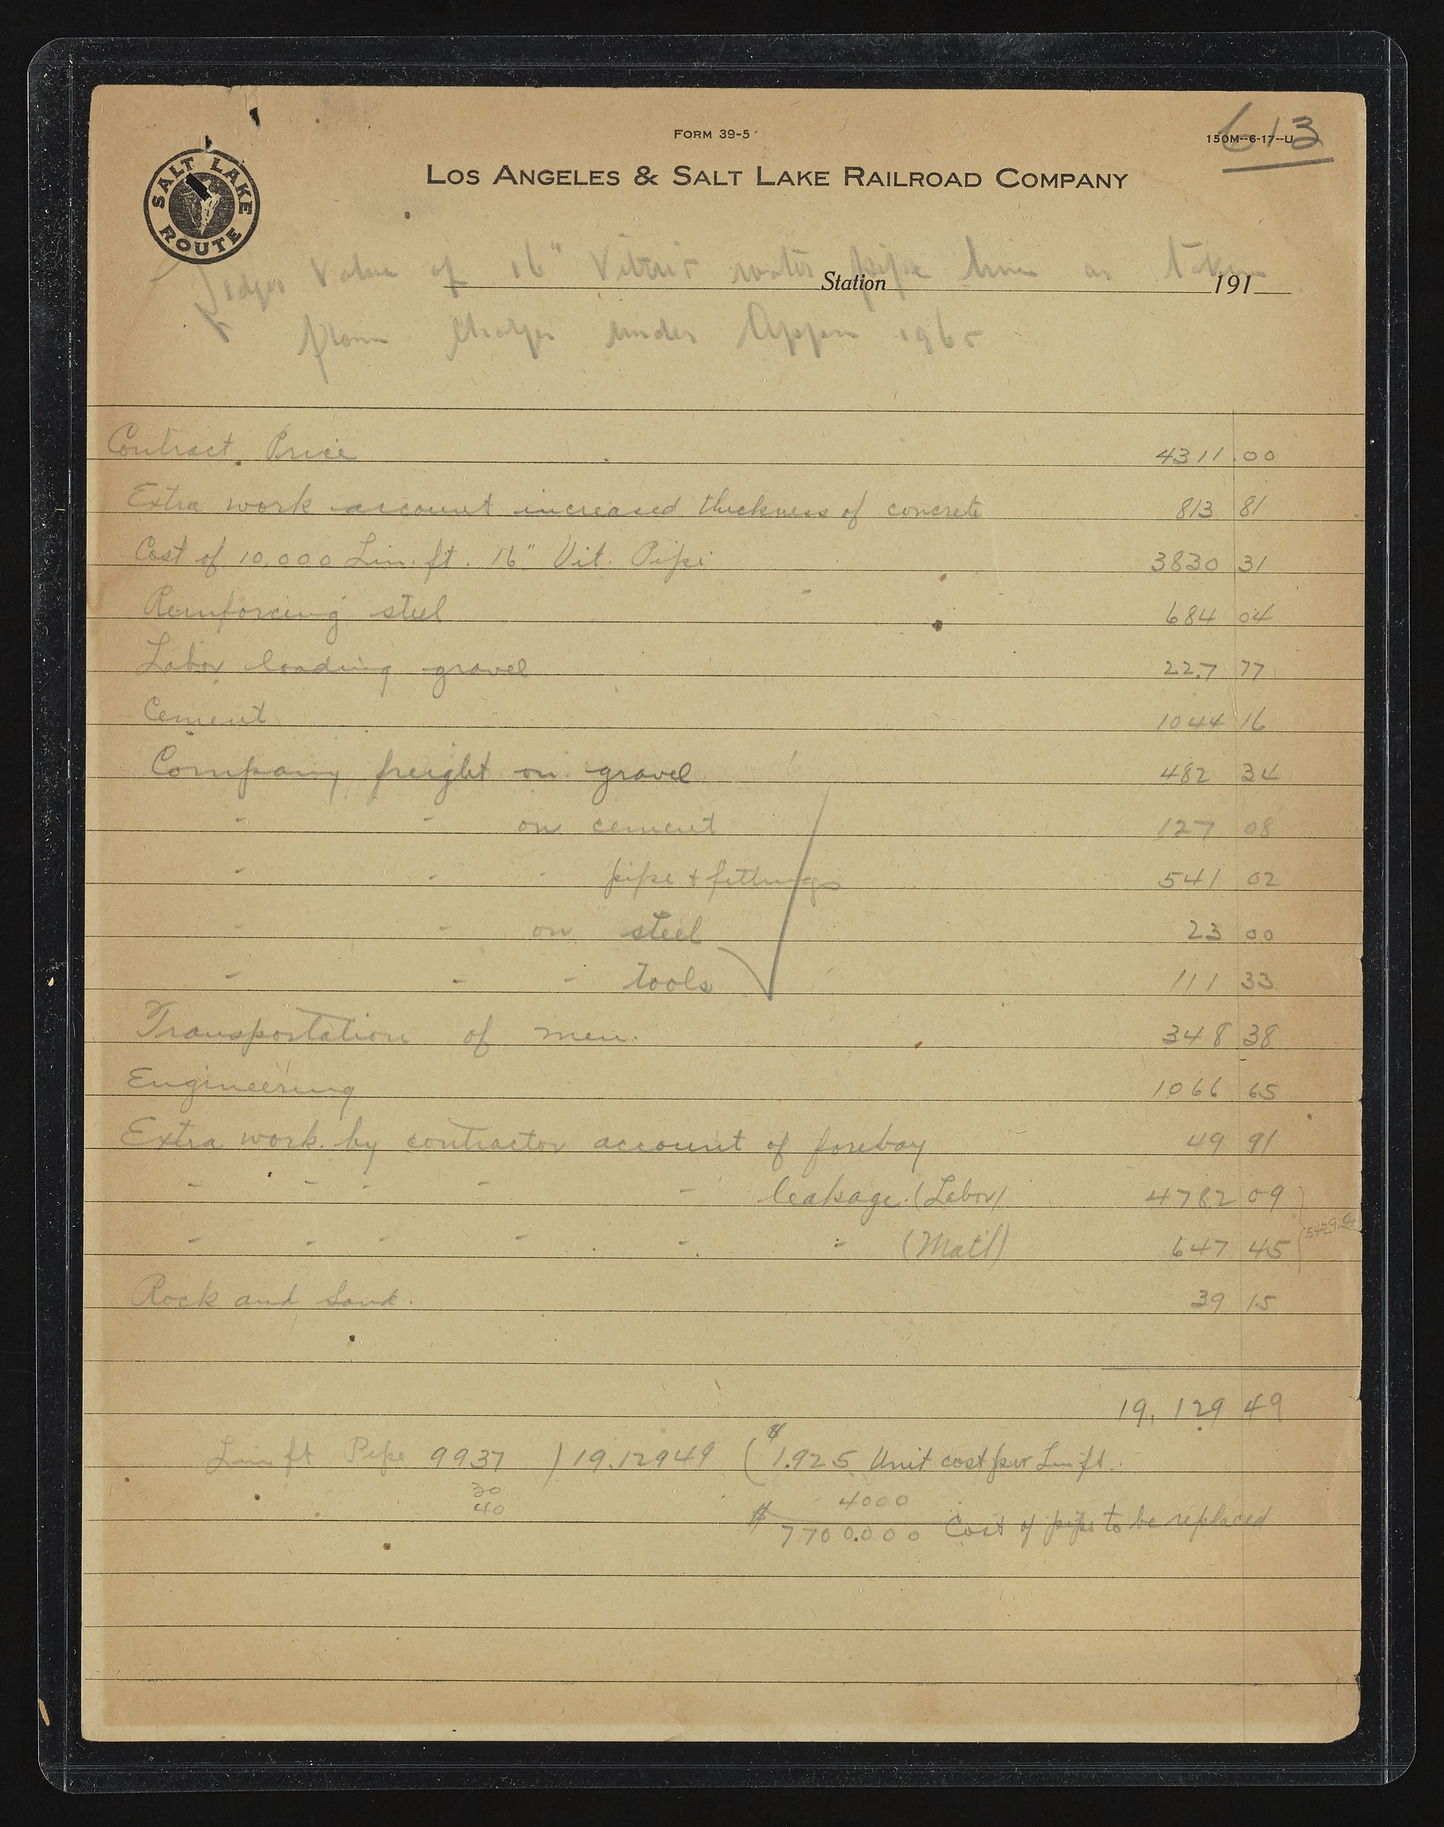 613
FORM 39-5
150M--6-17--U
SALT LAKE ROUTE
LOS ANGELES & SALT LAKE RAILROAD COMPANY
Value of 16" Vitric water pipe line as taken
Station 191
from Charges under Appn 1965
Contract Price 4311.00
Extra work account increased thickness of concrete 813 81
Cost of 10,000 Lin. ft. 16" Vit. Pipe 3830 31
Reinforcing steel 684 04
Labor loading gravel 227 77
Cement 1044 16
Company freight on gravel 482 34
" " on cement 127 08
" " " pipe & fittings 541 02
" " on steel 23 00
" " " tools 111 33
Transportation of men. 348 38
Engineering 1066 65
Extra work by contractor account of forebay 49 91
" " " " " leakage (Labor) 4782 09
" " " " " " (Mat'l) 647 45
5429.54
Rock and Sand. 39 15
19,129 49
Lin ft Pipe 9937 ) 19.12949 ( $1.925 Unit cost per Lin ft.
30
40
4000
$7700.000 Cost of pipe to be replaced